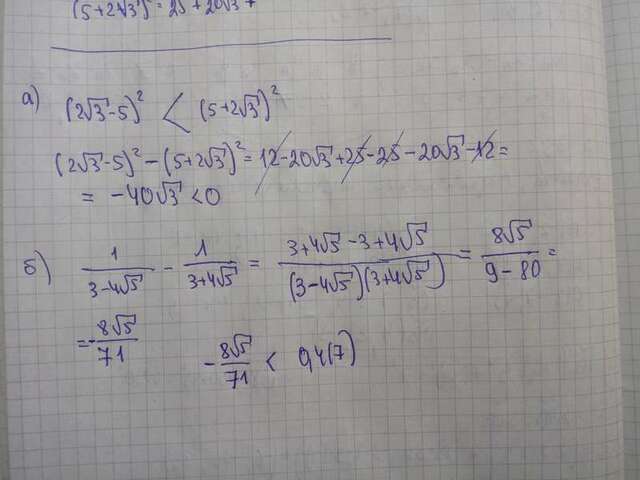 (5+2√3)² = 25 + 20√3 +
а) (2√3-5)² < (5+2√3)²
(2√3-5)² - (5+2√3)² = 12 - 20√3 + 25 - 25 - 20√3 - 12 =
= -40√3 < 0
б) 1/(3-4√5) - 1/(3+4√5) = (3+4√5-3+4√5)/((3-4√5)(3+4√5)) = 8√5/(9-80) =
= -8√5/71     -8√5/71 < 0,4(7)